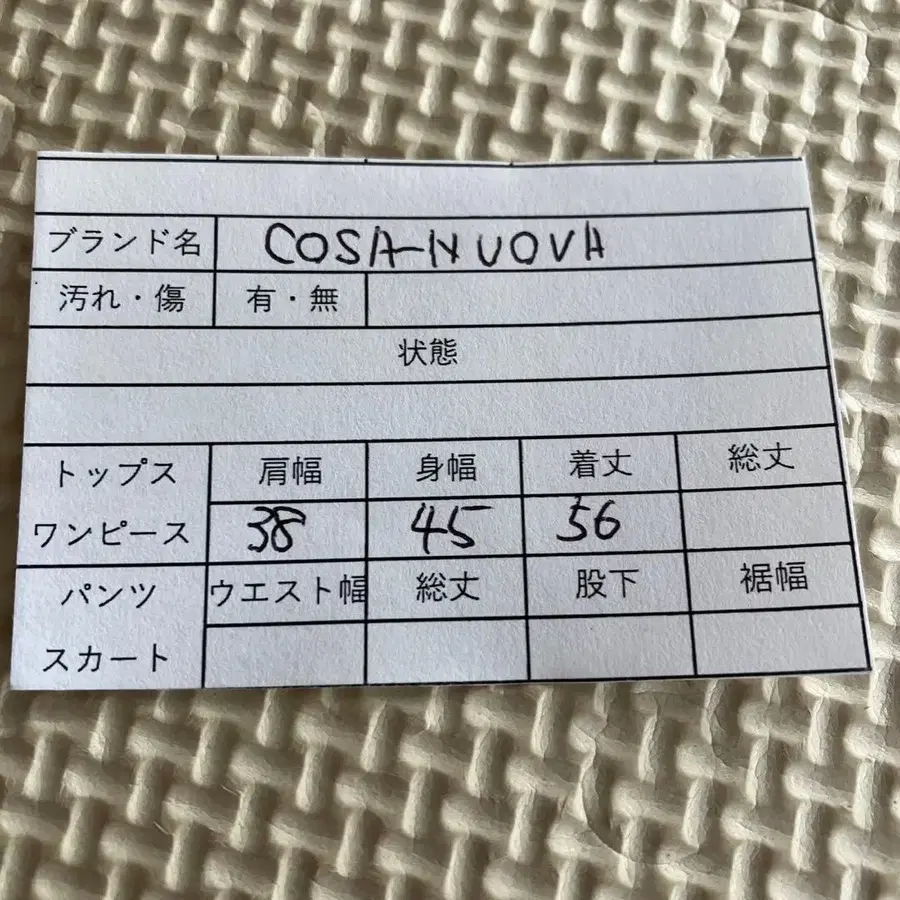 ブランド名 COSA NUOVA
汚れ・傷 有・無
状態
トップス 肩幅 身幅 着丈 総丈
ワンピース 38 45 56
パンツ ウエスト幅 総丈 股下 裾幅
スカート